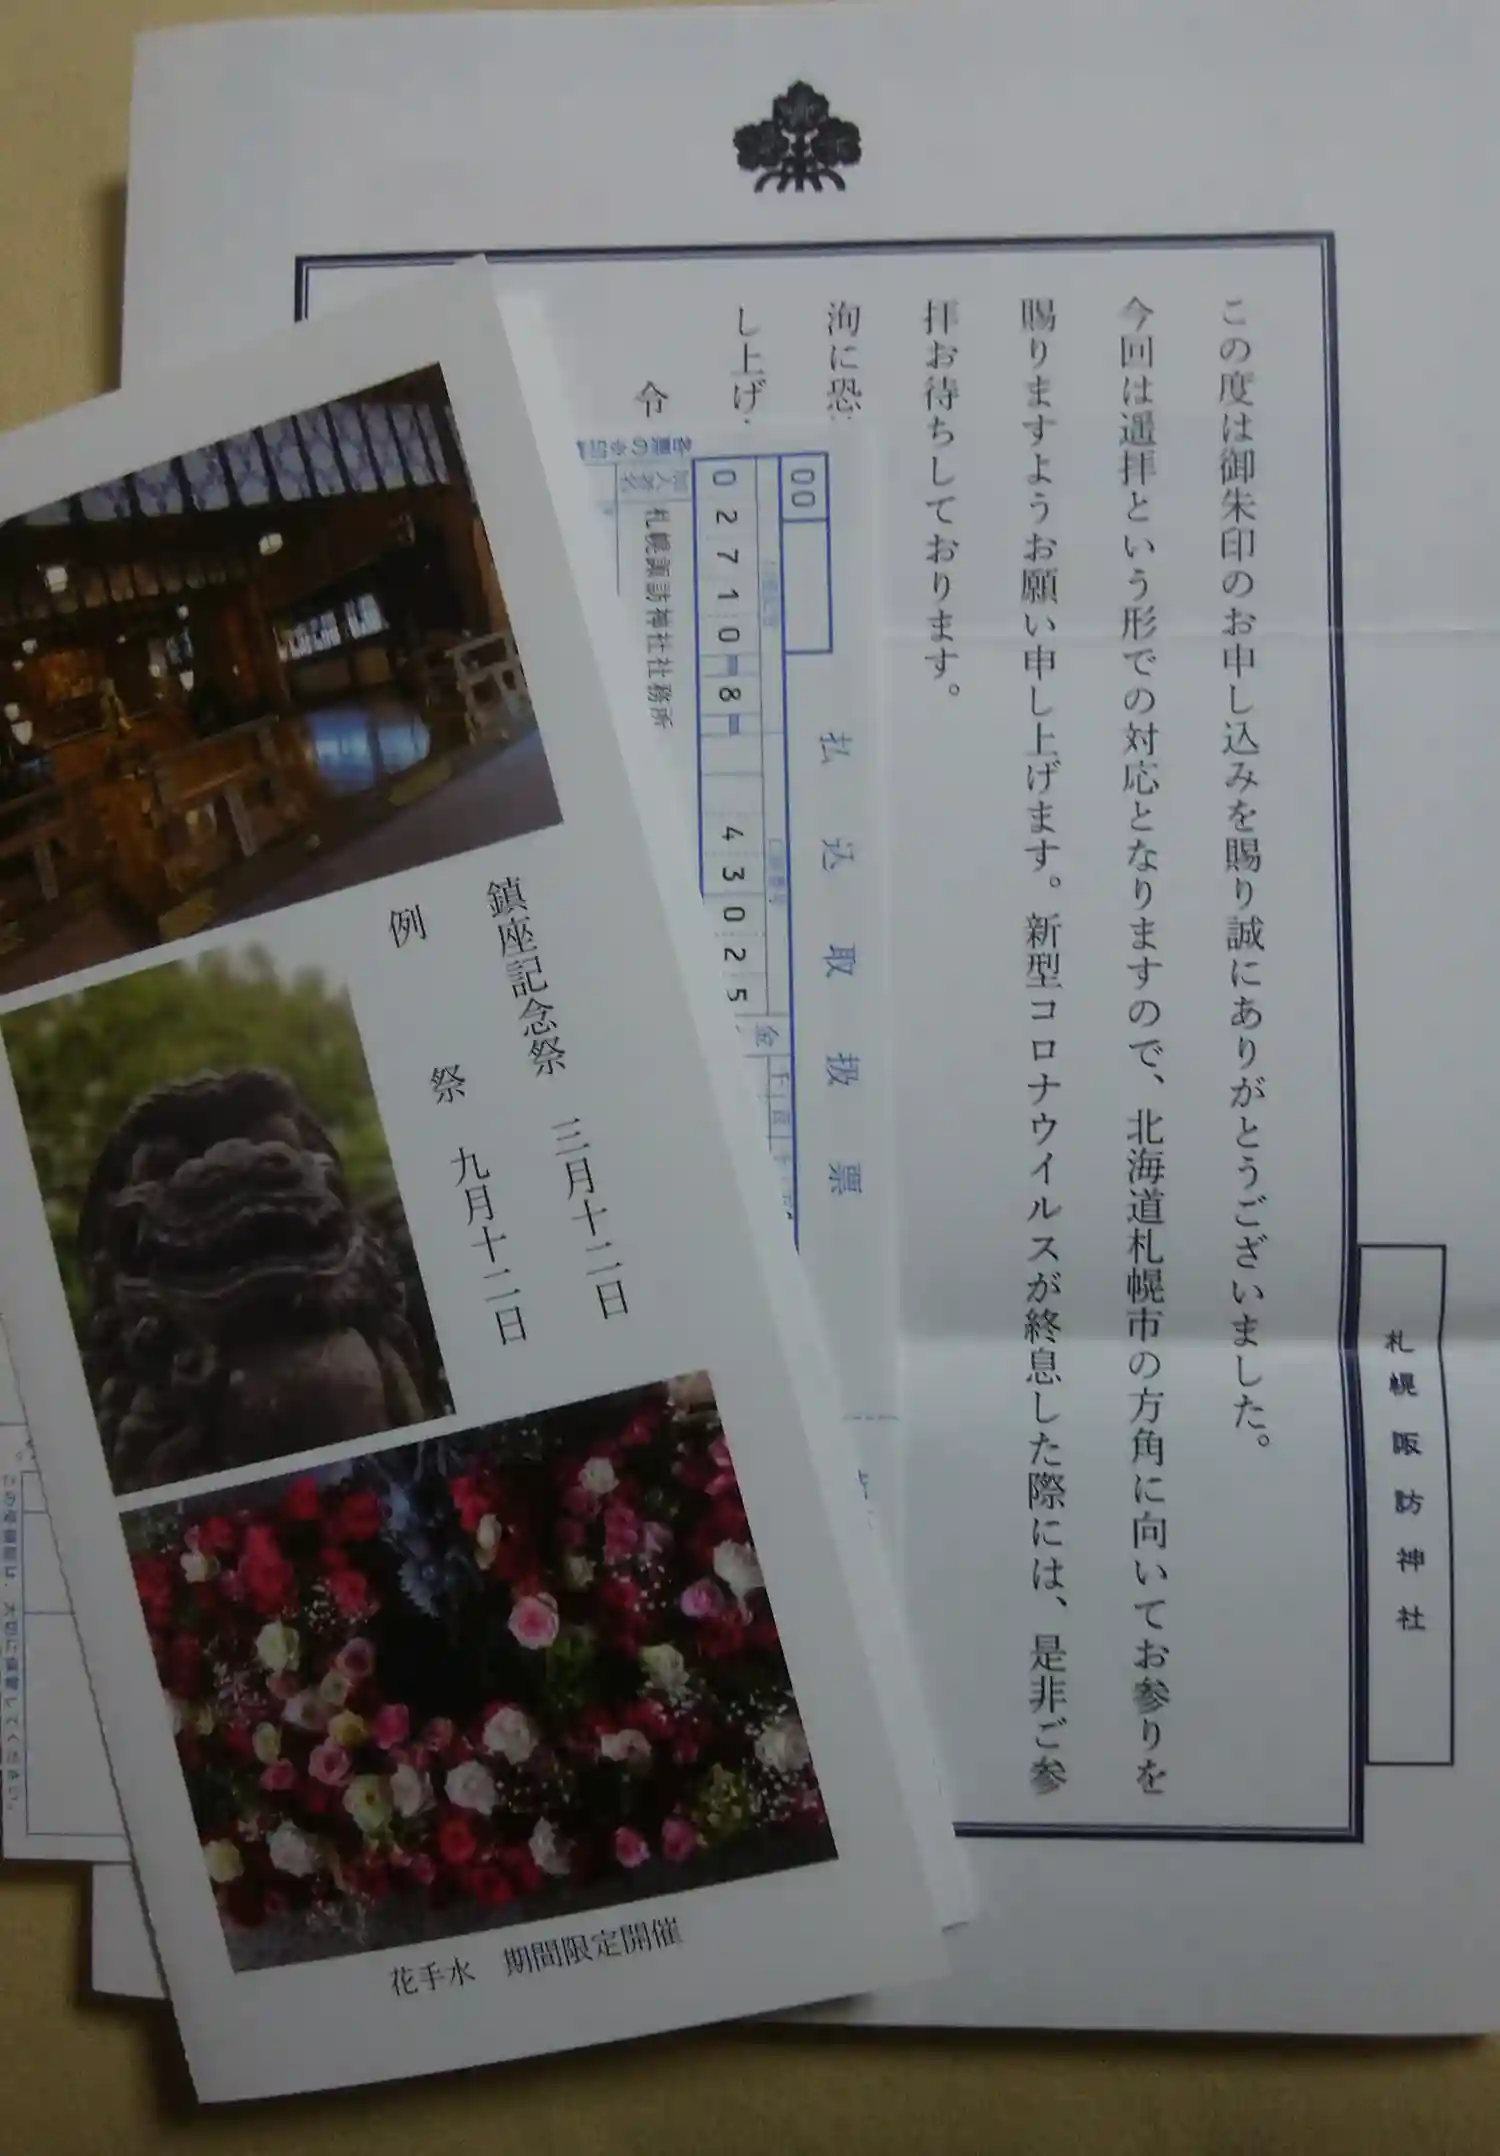 札幌諏訪神社
この度は御朱印のお申し込みを賜り誠にありがとうございました。
今回は遥拝という形での対応となりますので、北海道札幌市の方角に向いてお参りを
賜りますようお願い申し上げます。新型コロナウイルスが終息した際には、是非ご参
拝お待ちしております。
洵に恐
し上げ
令
払込取扱票
00
02710-8-
43025
金
千
百
加入者名
札幌諏訪神社社務所
鎮座記念祭 三月十二日
例 祭 九月十二日
花手水 期間限定開催
この受領証は、大切に保管してください。